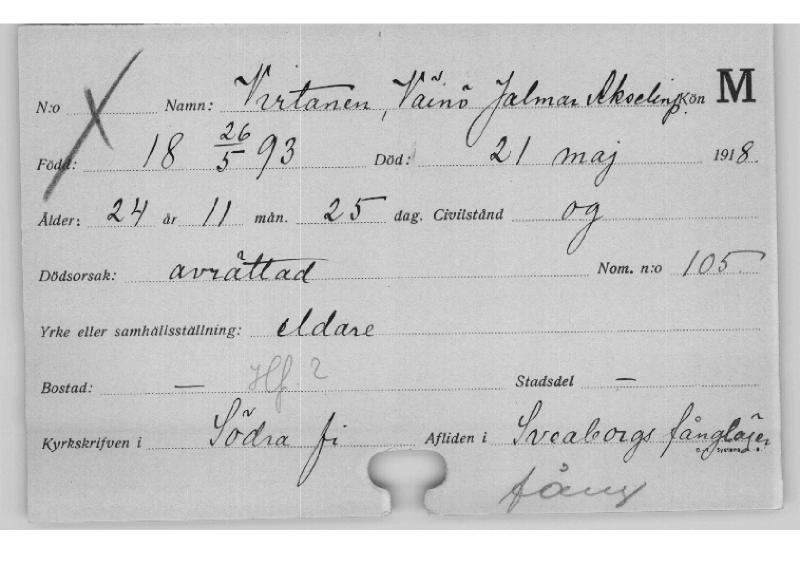 N:o Namn: Virtanen, Väinö Jalmar Akselinp. Kön M
Född: 18 26/5 93 Död: 21 maj 1918.
Ålder: 24 år 11 mån. 25 dag. Civilstånd og
Dödsorsak: avrättad Nom. n:o 105
Yrke eller samhällsställning: eldare
Bostad: — Hf ? Stadsdel —
Kyrkskrifven i Södra fi Afliden i Sveaborgs fångläger
fång